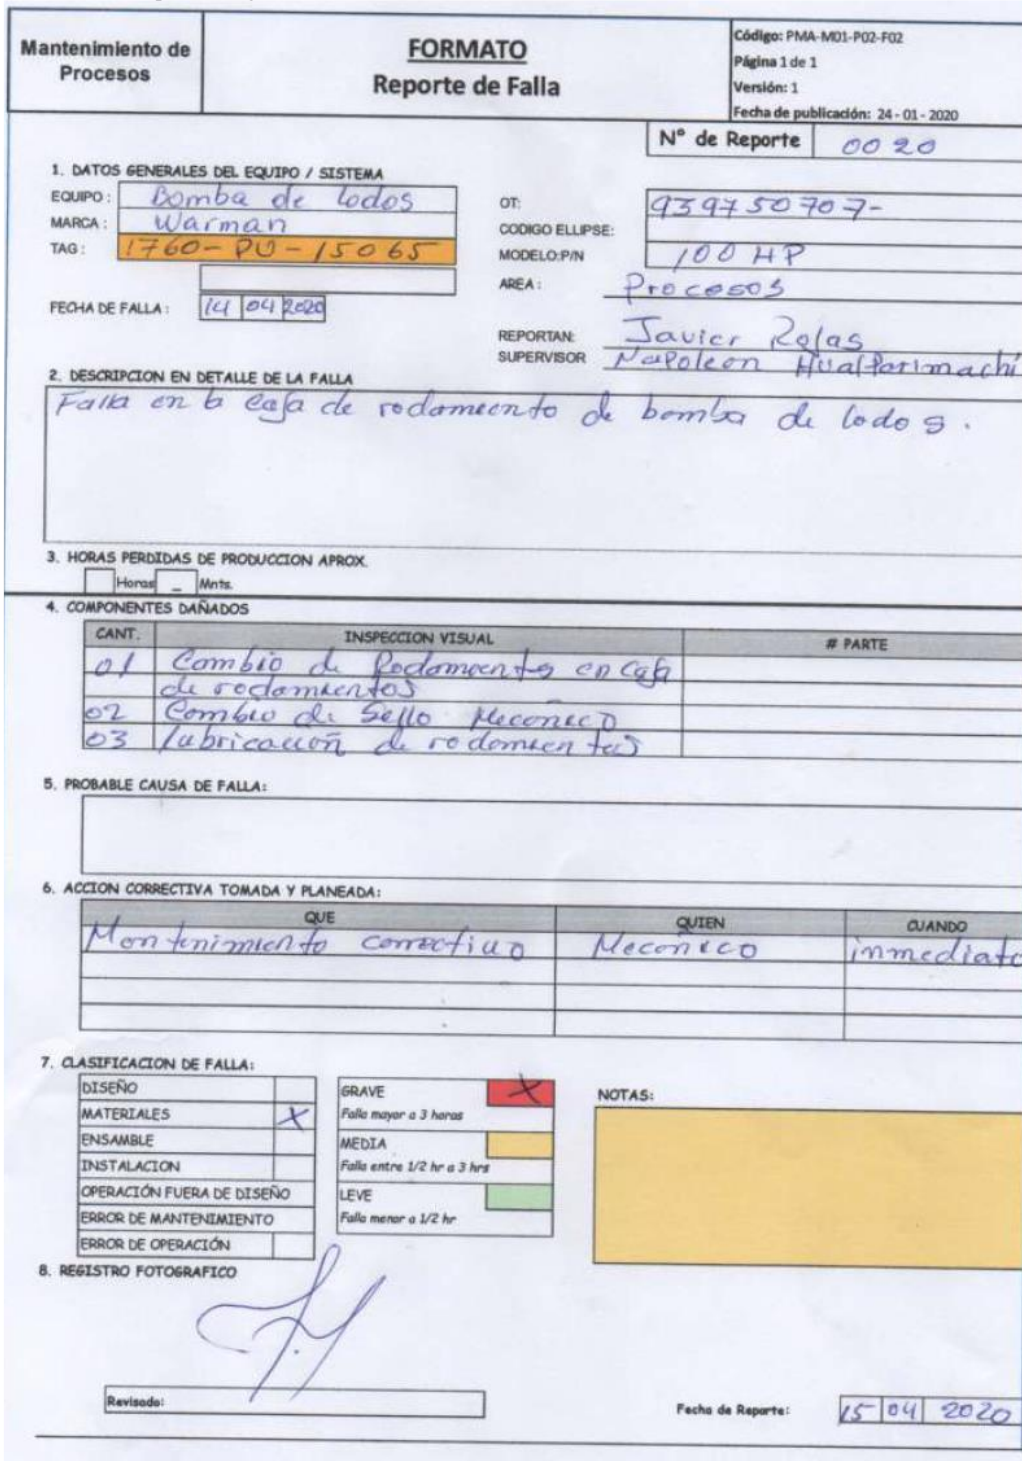 Mantenimiento de
Procesos
FORMATO
Reporte de Falla
Código: PMA-M01-P02-F02
Página 1 de 1
Versión: 1
Fecha de publicación: 24 - 01 - 2020
N° de Reporte 0020
1. DATOS GENERALES DEL EQUIPO / SISTEMA
EQUIPO : Bomba de lodos
MARCA : Warman
TAG : 1760-PU-15065
FECHA DE FALLA : 14 04 2020
OT: 939750707-
CODIGO ELLIPSE:
MODELO:P/N 100 HP
AREA : Procesos
REPORTAN: Javier Rojas
SUPERVISOR Napoleon Huallparimachi
2. DESCRIPCION EN DETALLE DE LA FALLA
Falla en la caja de rodamiento de bomba de lodos.
3. HORAS PERDIDAS DE PRODUCCION APROX.
Horas _ Mnts.
4. COMPONENTES DAÑADOS
CANT. INSPECCION VISUAL # PARTE
01 Cambio de Rodamientos en caja
de rodamientos
02 Cambio de Sello Mecanico
03 lubricación de rodamientos
5. PROBABLE CAUSA DE FALLA:
6. ACCION CORRECTIVA TOMADA Y PLANEADA:
QUE QUIEN CUANDO
Mantenimiento correctivo Mecanico inmediato
7. CLASIFICACION DE FALLA:
DISEÑO
MATERIALES X
ENSAMBLE
INSTALACION
OPERACIÓN FUERA DE DISEÑO
ERROR DE MANTENIMIENTO
ERROR DE OPERACIÓN
GRAVE X
Falla mayor a 3 horas
MEDIA
Falla entre 1/2 hr a 3 hrs
LEVE
Falla menor a 1/2 hr
NOTAS:
8. REGISTRO FOTOGRAFICO
Revisado:
Fecha de Reporte: 15 04 2020